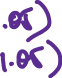 .05)
1.05)